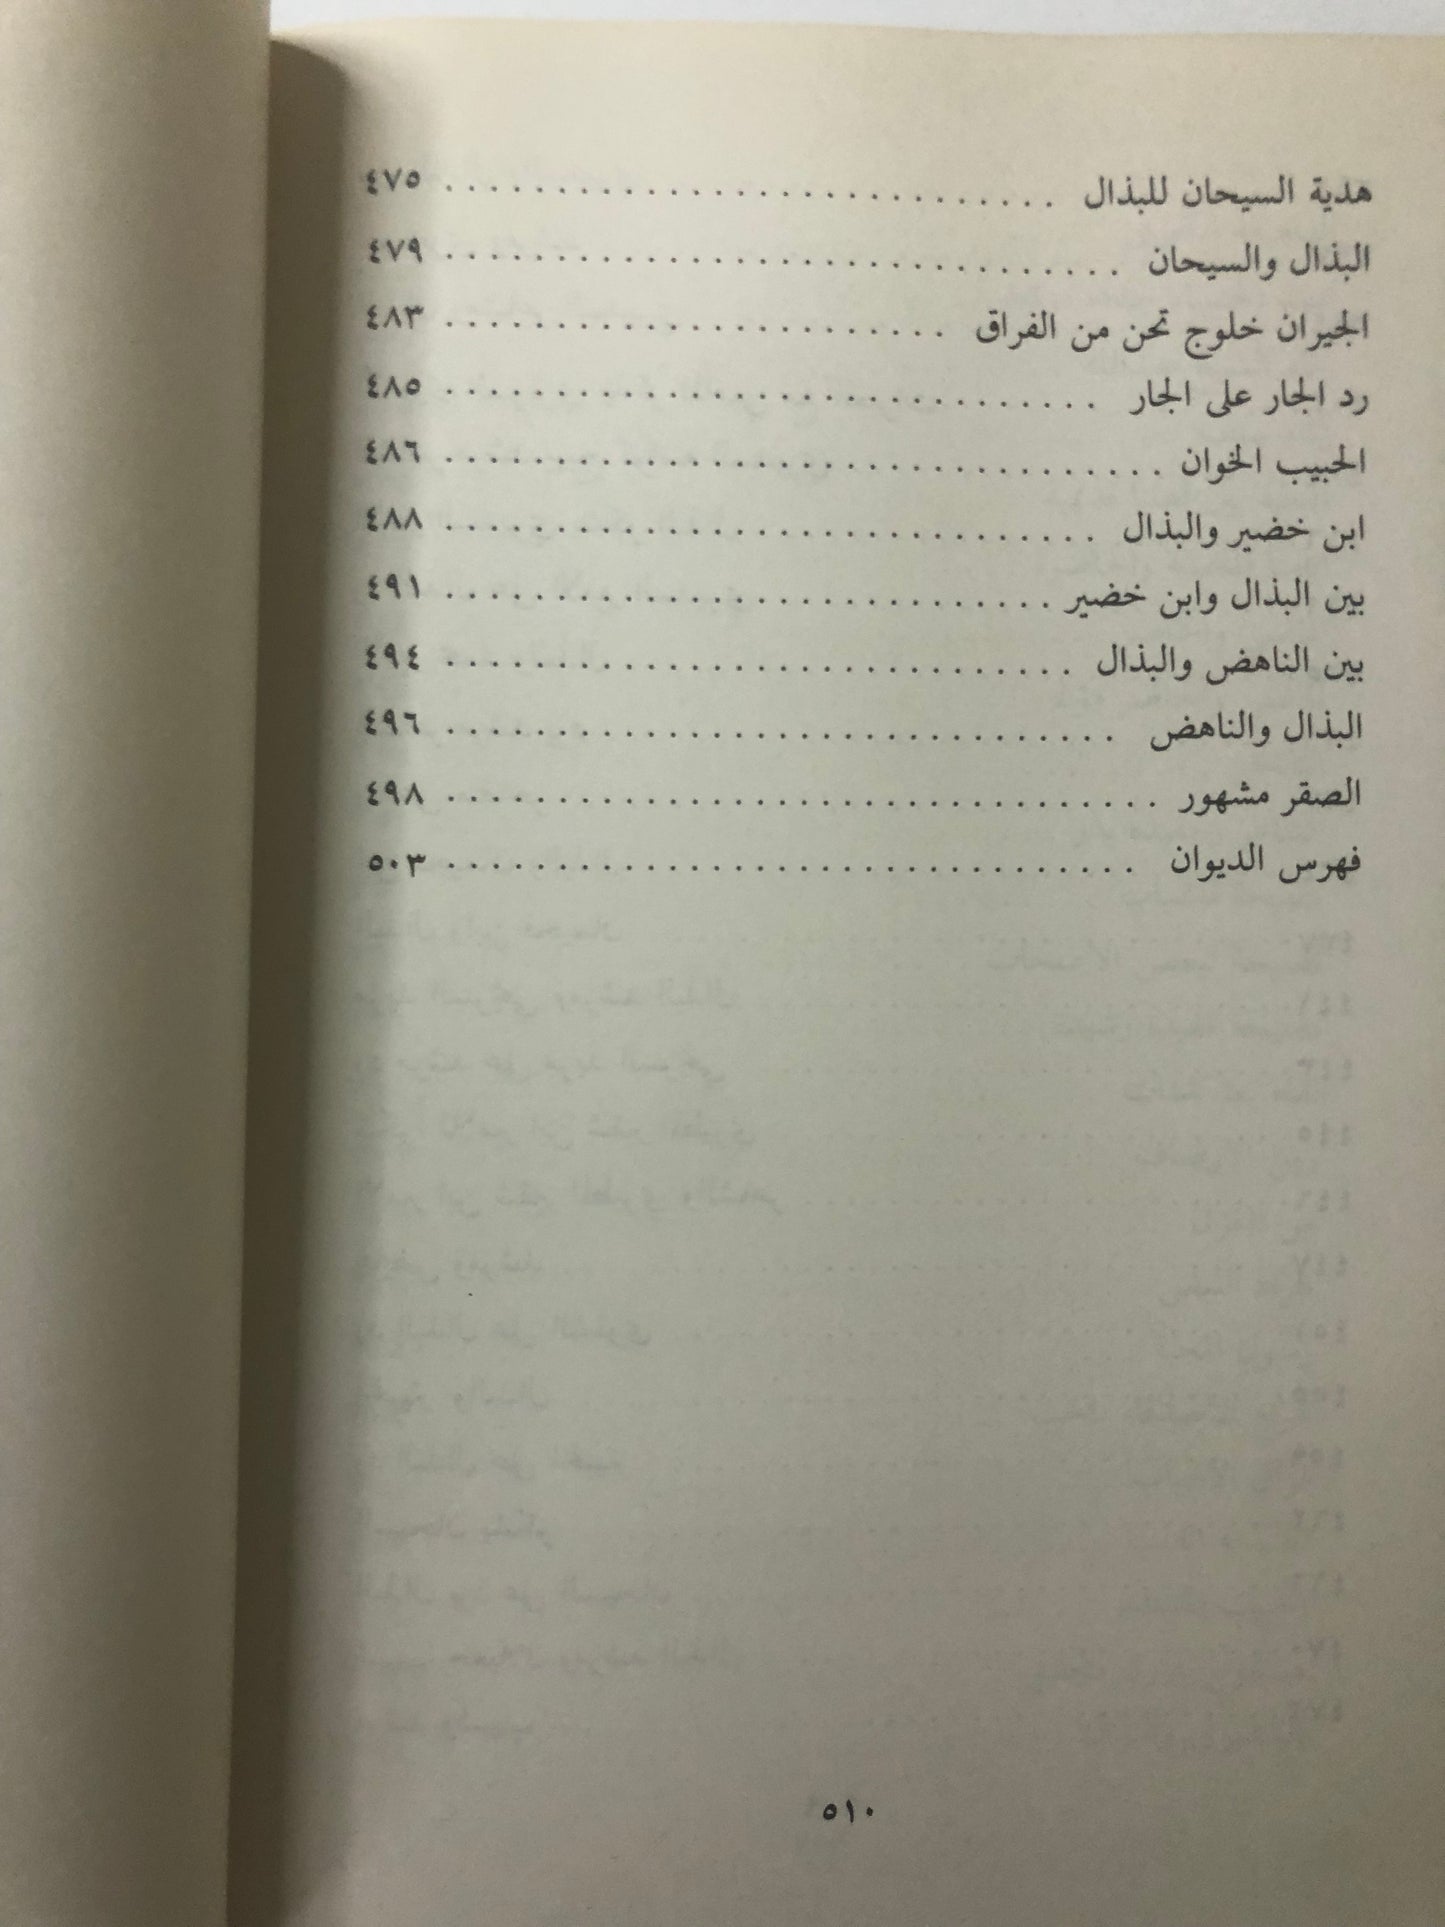 هدية السيحان للبذال . . . . . . . . . . . . . . . . . . . . . . . . . . . . ٤٧٥
البذال والسيحان . . . . . . . . . . . . . . . . . . . . . . . . . . . . . . . ٤٧٩
الجيران خلوج تحن من الفراق . . . . . . . . . . . . . . . . . . . . . . . ٤٨٣
رد الجار على الجار . . . . . . . . . . . . . . . . . . . . . . . . . . . . . . ٤٨٥
الحبيب الخوان . . . . . . . . . . . . . . . . . . . . . . . . . . . . . . . . . ٤٨٦
ابن خضير والبذال . . . . . . . . . . . . . . . . . . . . . . . . . . . . . . ٤٨٨
بين البذال وابن خضير . . . . . . . . . . . . . . . . . . . . . . . . . . . . ٤٩١
بين الناهض والبذال . . . . . . . . . . . . . . . . . . . . . . . . . . . . . ٤٩٤
البذال والناهض . . . . . . . . . . . . . . . . . . . . . . . . . . . . . . . ٤٩٦
الصقر مشهور . . . . . . . . . . . . . . . . . . . . . . . . . . . . . . . . . ٤٩٨
فهرس الديوان . . . . . . . . . . . . . . . . . . . . . . . . . . . . . . . . ٥٠٣
٥١٠